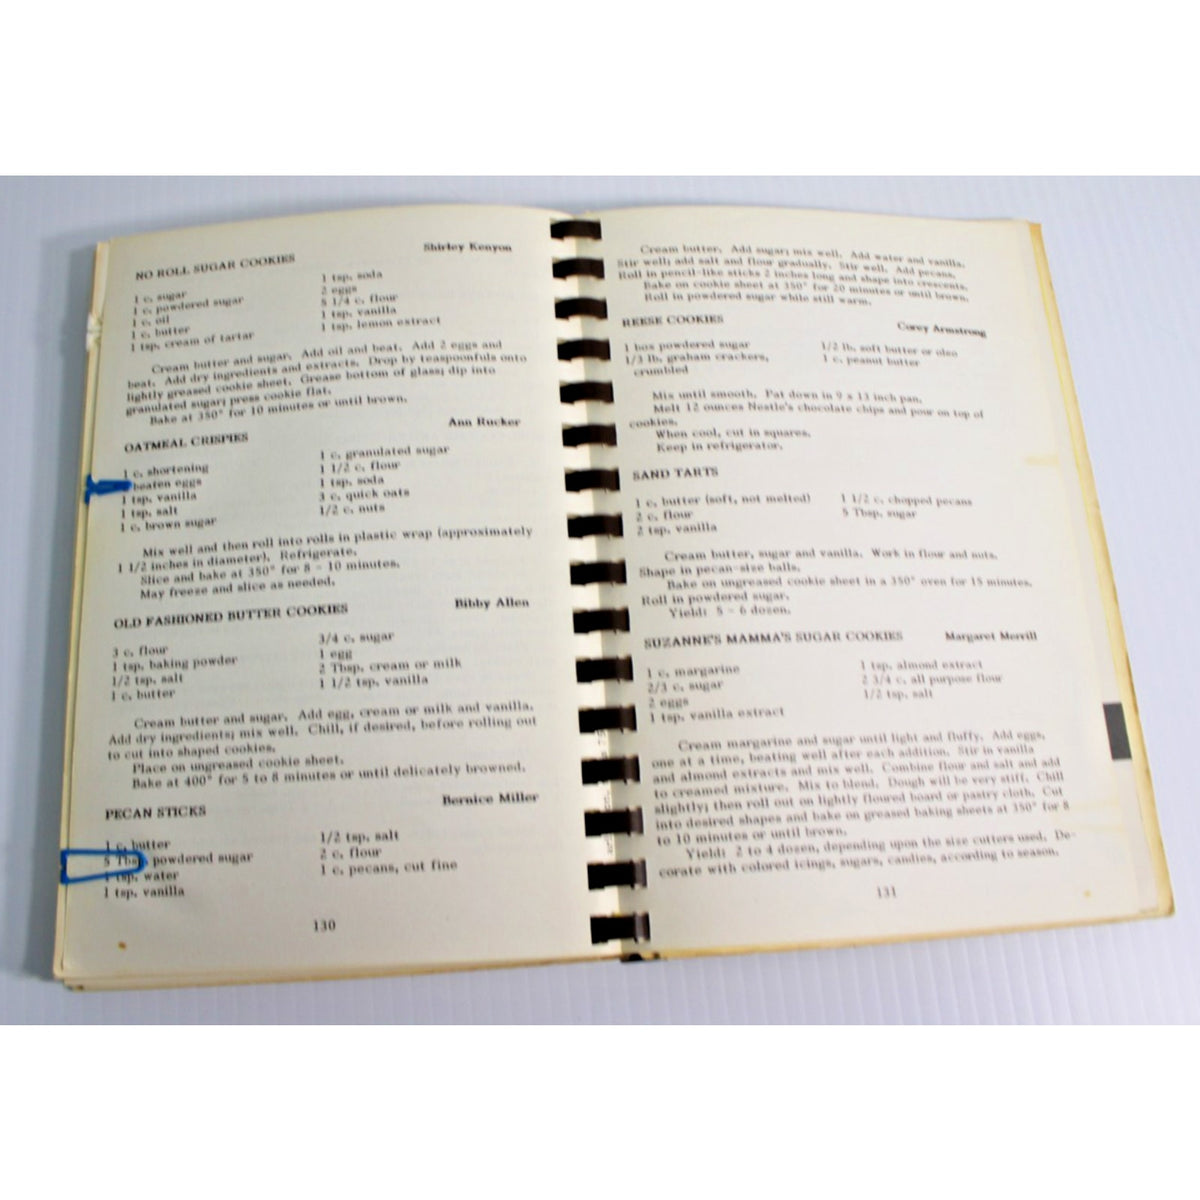 Shirley Kenyon
NO ROLL SUGAR COOKIES
1 c. sugar
1 c. powdered sugar
1 c. oil
1 c. butter
1 tsp. cream of tartar
1 tsp. soda
2 eggs
5 1/4 c. flour
1 tsp. vanilla
1 tsp. lemon extract
Cream butter and sugar. Add oil and beat. Add 2 eggs and
beat. Add dry ingredients and extracts. Drop by teaspoonfuls onto
lightly greased cookie sheet. Grease bottom of glass; dip into
granulated sugar; press cookie flat.
Bake at 350° for 10 minutes or until brown.
Ann Rucker
OATMEAL CRISPIES
1 c. shortening
beaten eggs
1 tsp. vanilla
1 tsp. salt
1 c. brown sugar
1 c. granulated sugar
1 1/2 c. flour
1 tsp. soda
3 c. quick oats
1/2 c. nuts
Mix well and then roll into rolls in plastic wrap (approximately
1 1/2 inches in diameter). Refrigerate.
Slice and bake at 350° for 8 - 10 minutes.
May freeze and slice as needed.
Bibby Allen
OLD FASHIONED BUTTER COOKIES
3 c. flour
1 tsp. baking powder
1/2 tsp. salt
1 c. butter
3/4 c. sugar
1 egg
2 Tbsp. cream or milk
1 1/2 tsp. vanilla
Cream butter and sugar. Add egg, cream or milk and vanilla.
Add dry ingredients; mix well. Chill, if desired, before rolling out
to cut into shaped cookies.
Place on ungreased cookie sheet.
Bake at 400° for 5 to 8 minutes or until delicately browned.
Bernice Miller
PECAN STICKS
1 c. butter
5 Tbsp. powdered sugar
1 tsp. water
1 tsp. vanilla
1/2 tsp. salt
2 c. flour
1 c. pecans, cut fine
130
Cream butter. Add sugar; mix well. Add water and vanilla.
Stir well; add salt and flour gradually. Stir well. Add pecans.
Roll in pencil-like sticks 2 inches long and shape into crescents.
Bake on cookie sheet at 350° for 20 minutes or until brown.
Roll in powdered sugar while still warm.
REESE COOKIES
Corey Armstrong
1 box powdered sugar
1/3 lb. graham crackers,
crumbled
1/2 lb. soft butter or oleo
1 c. peanut butter
Mix until smooth. Pat down in 9 x 13 inch pan.
Melt 12 ounces Nestle's chocolate chips and pour on top of
cookies.
When cool, cut in squares.
Keep in refrigerator.
SAND TARTS
1 c. butter (soft, not melted)
2 c. flour
2 tsp. vanilla
1 1/2 c. chopped pecans
5 Tbsp. sugar
Cream butter, sugar and vanilla. Work in flour and nuts.
Shape in pecan-size balls.
Bake on ungreased cookie sheet in a 350° oven for 15 minutes.
Roll in powdered sugar.
Yield: 5 - 6 dozen.
SUZANNE'S MAMMA'S SUGAR COOKIES
Margaret Merrill
1 c. margarine
2/3 c. sugar
2 eggs
1 tsp. vanilla extract
1 tsp. almond extract
2 3/4 c. all purpose flour
1/2 tsp. salt
Cream margarine and sugar until light and fluffy. Add eggs,
one at a time, beating well after each addition. Stir in vanilla
and almond extracts and mix well. Combine flour and salt and add
to creamed mixture. Mix to blend. Dough will be very stiff. Chill
slightly; then roll out on lightly floured board or pastry cloth. Cut
into desired shapes and bake on greased baking sheets at 350° for 8
to 10 minutes or until brown.
Yield: 2 to 4 dozen, depending upon the size cutters used. De-
corate with colored icings, sugars, candies, according to season.
131